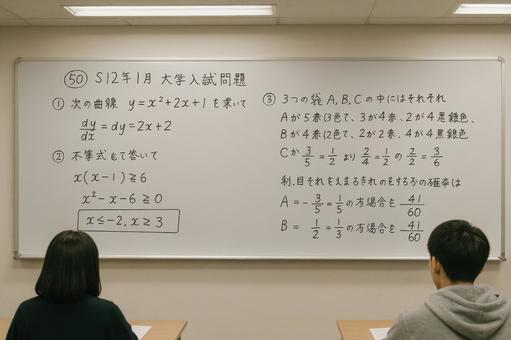 50 S12年1月 大学入試問題
① 次の曲線 y=x²+2x+1 を求いて
dy/dx = dy = 2x+2
② 不等式もて答いて
x(x−1)≧6
x²−x−6≧0
x≤−2, x≥3
③ 3つの袋 A, B, C の中にはそれぞれ
Aが5赤(3色て、3が4赤、2が4
Bが4赤(2色て、2が2赤、4が4黒銀色
Cか 3/5 = 1/2 より 2/4 = 1/2 の 2/2 = 3/6
A = − 3/5 = 1/5 の方場合を 41/60
B = 1/2 = 1/3 の方場合を 41/60